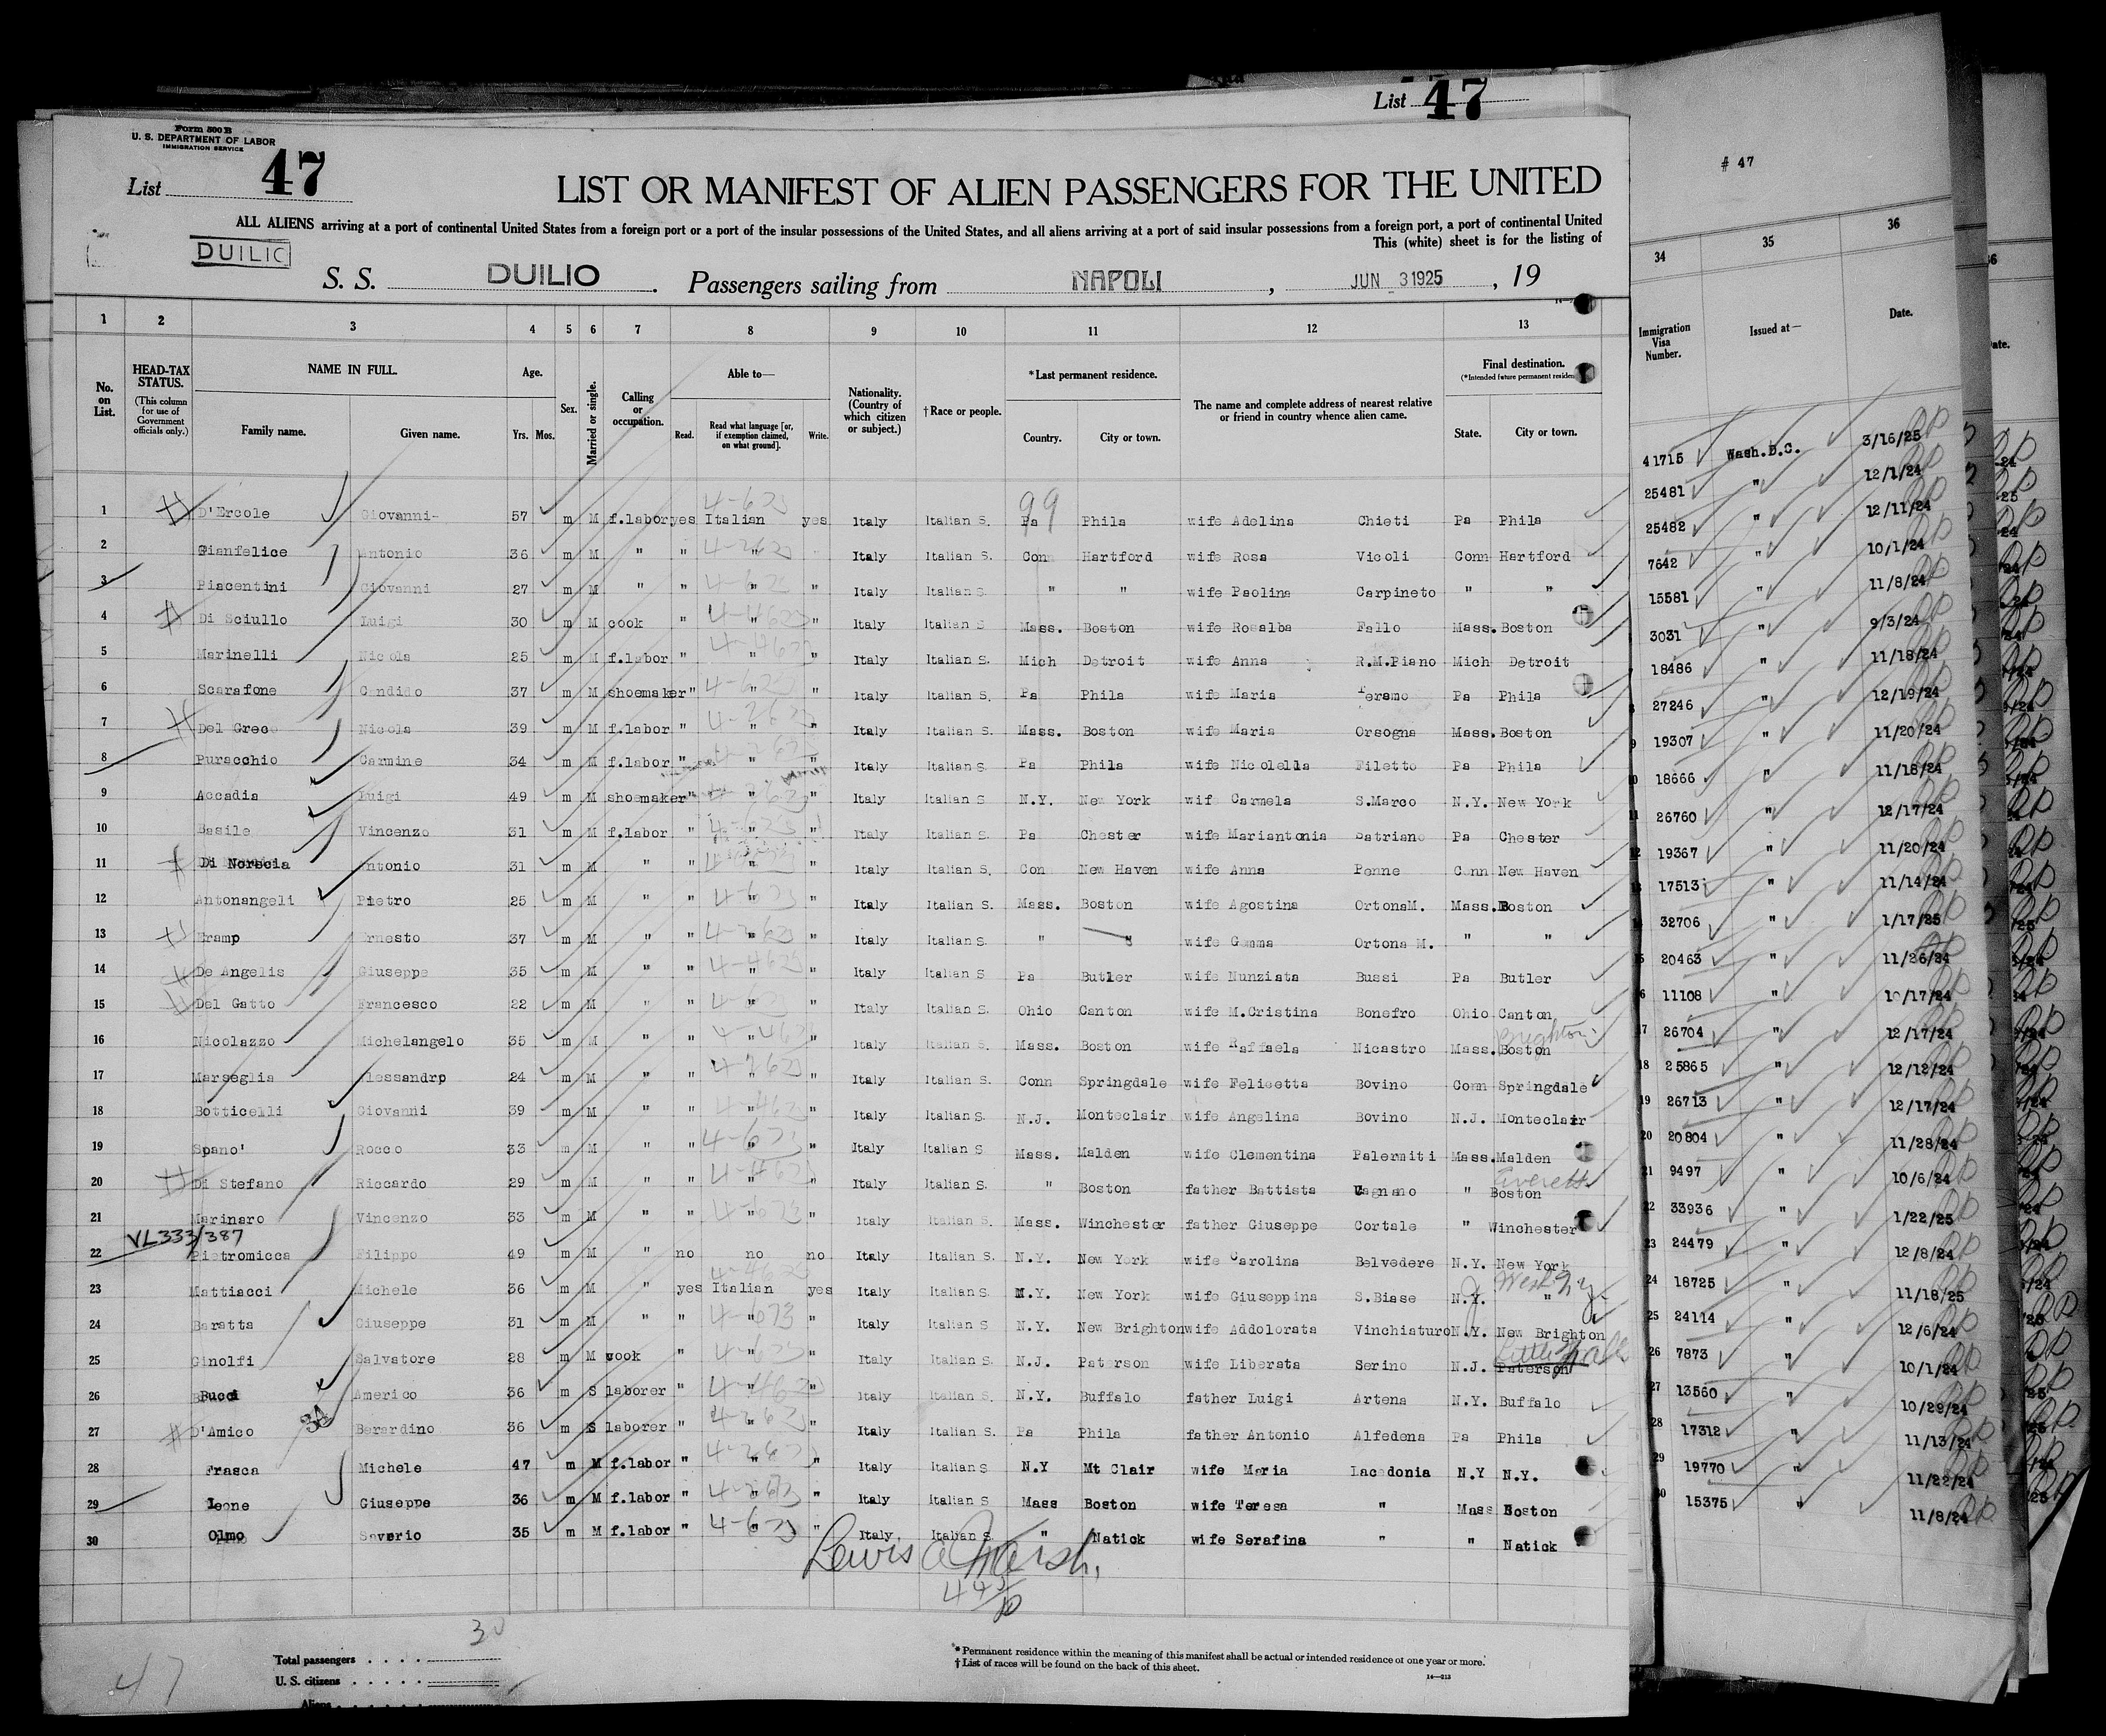 List 47
Form 500 B
U. S. DEPARTMENT OF LABOR
IMMIGRATION SERVICE
List 47
# 47
LIST OR MANIFEST OF ALIEN PASSENGERS FOR THE UNITED
ALL ALIENS arriving at a port of continental United States from a foreign port or a port of the insular possessions of the United States, and all aliens arriving at a port of said insular possessions from a foreign port, a port of continental United
This (white) sheet is for the listing of
DUILIO
S. S. DUILIO. Passengers sailing from NAPOLI, JUN 3 1925, 19
1 2 3 4 5 6 7 8 9 10 11 12 13 34 35 36
No. on List. HEAD-TAX STATUS. (This column for use of Government officials only.) NAME IN FULL. Family name. Given name. Age. Yrs. Mos. Sex. Married or single. Calling or occupation. Able to— Read. Read what language [or, if exemption claimed, on what ground]. Write. Nationality. (Country of which citizen or subject.) † Race or people. * Last permanent residence. Country. City or town. The name and complete address of nearest relative or friend in country whence alien came. Final destination. (*Intended future permanent residence) State. City or town. Immigration Visa Number. Issued at— Date.
99
1 D'Ercole Giovanni 57 m M f.labor yes Italian yes Italy Italian S. Pa Phila wife Adelina Chieti Pa Phila
2 Gianfelice Antonio 36 m M " " " " Italy Italian S. Con Hartford wife Rosa Vicoli Conn Hartford
3 Piacentini Giovanni 27 m M " " " " Italy Italian S. " " wife Paolina Carpineto " "
4 Di Sciullo Luigi 30 m M cook " " " Italy Italian S Mass. Boston wife Rosalba Fallo Mass. Boston
5 Marinelli Nicola 25 m M f.labor " " " Italy Italian S. Mich Detroit wife Anna R.M.Piano Mich Detroit
6 Scarafone Candido 37 m M shoemaker " " " Italy Italian S. Pa Phila wife Maria Teramo Pa Phila
7 Del Greco Nicola 39 m M f.labor " " " Italy Italian S. Mass. Boston wife Maria Orsogna Mass. Boston
8 Puracchio Carmine 34 m M f.labor " " " Italy Italian S Pa Phila wife Nicolella Filetto Pa Phila
9 Accadia Luigi 49 m M shoemaker " " " Italy Italian S N.Y. New York wif Carmela S.Marco N.Y. New York
10 Basile Vincenzo 31 m M f.labor " " " Italy Italian S. Pa Chester wife Mariantonia Satriano Pa Chester
11 Di Norscia Antonio 31 m M " " " " Italy Italian S. Con New Haven wife Anna Penne Conn New Haven
12 Antonangeli Pietro 25 m M " " " " Italy Italian S. Mass. Boston wife Agostina OrtonaM. Mass. Boston
13 Eramp Ernesto 37 m M " " " " Italy Italian S. " " wife Gemma Ortona M. " "
14 De Angelis Giuseppe 35 m M " " " " Italy Italian S Pa Butler wife Nunziata Bussi Pa Butler
15 Del Gatto Francesco 22 m M " " " " Italy Italian S. Ohio Canton wife M.Cristina Bonefro Ohio Canton
Brighton
16 Nicolazzo Michelangelo 35 m M " " " " Italy Italian S. Mass. Boston wife Raffaela Nicastro Mass. Boston
17 Marseglia Alessandro 24 m M " " " " Italy Italian S. Conn Springdale wife Felicetta Bovino Conn Springdale
18 Botticelli Giovanni 39 m M " " " " Italy Italian S. N.J. Monteclair wife Angelina Bovino N.J. Monteclair
19 Spano' Rocco 33 m M " " " " Italy Italian S Mass. Malden wife Clementina Palermiti Mass. Malden
Everett
20 Di Stefano Riccardo 29 m M " " " " Italy Italian S. " Boston father Battista Cagnano " Boston
21 Marinaro Vincenzo 33 m M " " " " Italy Italian S. Mass. Winchester father Giuseppe Cortale " Winchester
VL333/387
22 Pietromicca Filippo 49 m M " no no no Italy Italian S. N.Y. New York wife Carolina Belvedere N.Y. New York
23 Mattiacci Michele 36 m M " yes Italian yes Italy Italian S. N.Y. New York wife Giuseppina S.Biase N.Y. "
24 Baratta Giuseppe 31 m M " " " " Italy Italian S N.Y. New Brighton wife Addolorata Vinchiaturo N.Y. New Brighton
Little Falls
25 Ginolfi Salvatore 28 m M cook " " " Italy Italian S. N.J. Paterson wife Liberata Serino N.J. Paterson
26 Bucci Americo 36 m S laborer " " " Italy Italian S. N.Y. Buffalo father Luigi Artena N.Y. Buffalo
27 D'Amico Berardino 36 m S laborer " " " Italy Italian S. Pa Phila father Antonio Alfedena Pa Phila
28 Frasca Michele 47 m M f.labor " " " Italy Italian S N.Y Mt Clair wife Maria Lacedonia N.Y N.Y.
29 Leone Giuseppe 36 m M f.labor " " " Italy Italian S Mass Boston wife Teresa " Mass Boston
30 Olmo Saverio 35 m M f.labor " " " Italy Italian S. " Natick wife Serafina " " Natick
41715 Wash.D.C. 3/16/25
25481 " 12/1/24
25482 " 12/11/24
7642 " 10/1/24
15581 " 11/8/24
3031 " 9/3/24
18486 " 11/18/24
27246 " 12/19/24
9 19307 " 11/20/24
10 18666 " 11/18/24
11 26760 " 12/17/24
12 19367 " 11/20/24
13 17513 " 11/14/24
14 32706 " 1/17/25
15 20463 " 11/26/24
16 11108 " 10/17/24
17 26704 " 12/17/24
18 25865 " 12/12/24
19 26713 " 12/17/24
20 20804 " 11/28/24
21 9497 " 10/6/24
22 33936 " 1/22/25
23 24479 " 12/8/24
24 18725 " 11/18/25
25 24114 " 12/6/24
26 7873 " 10/1/24
27 13560 " 10/29/24
28 17312 " 11/13/24
29 19770 " 11/22/24
30 15375 " 11/8/24
Lewis A Marsh.
30
47
Total passengers
U. S. citizens
Aliens
* Permanent residence within the meaning of this manifest shall be actual or intended residence of one year or more.
† List of races will be found on the back of this sheet.
14—213